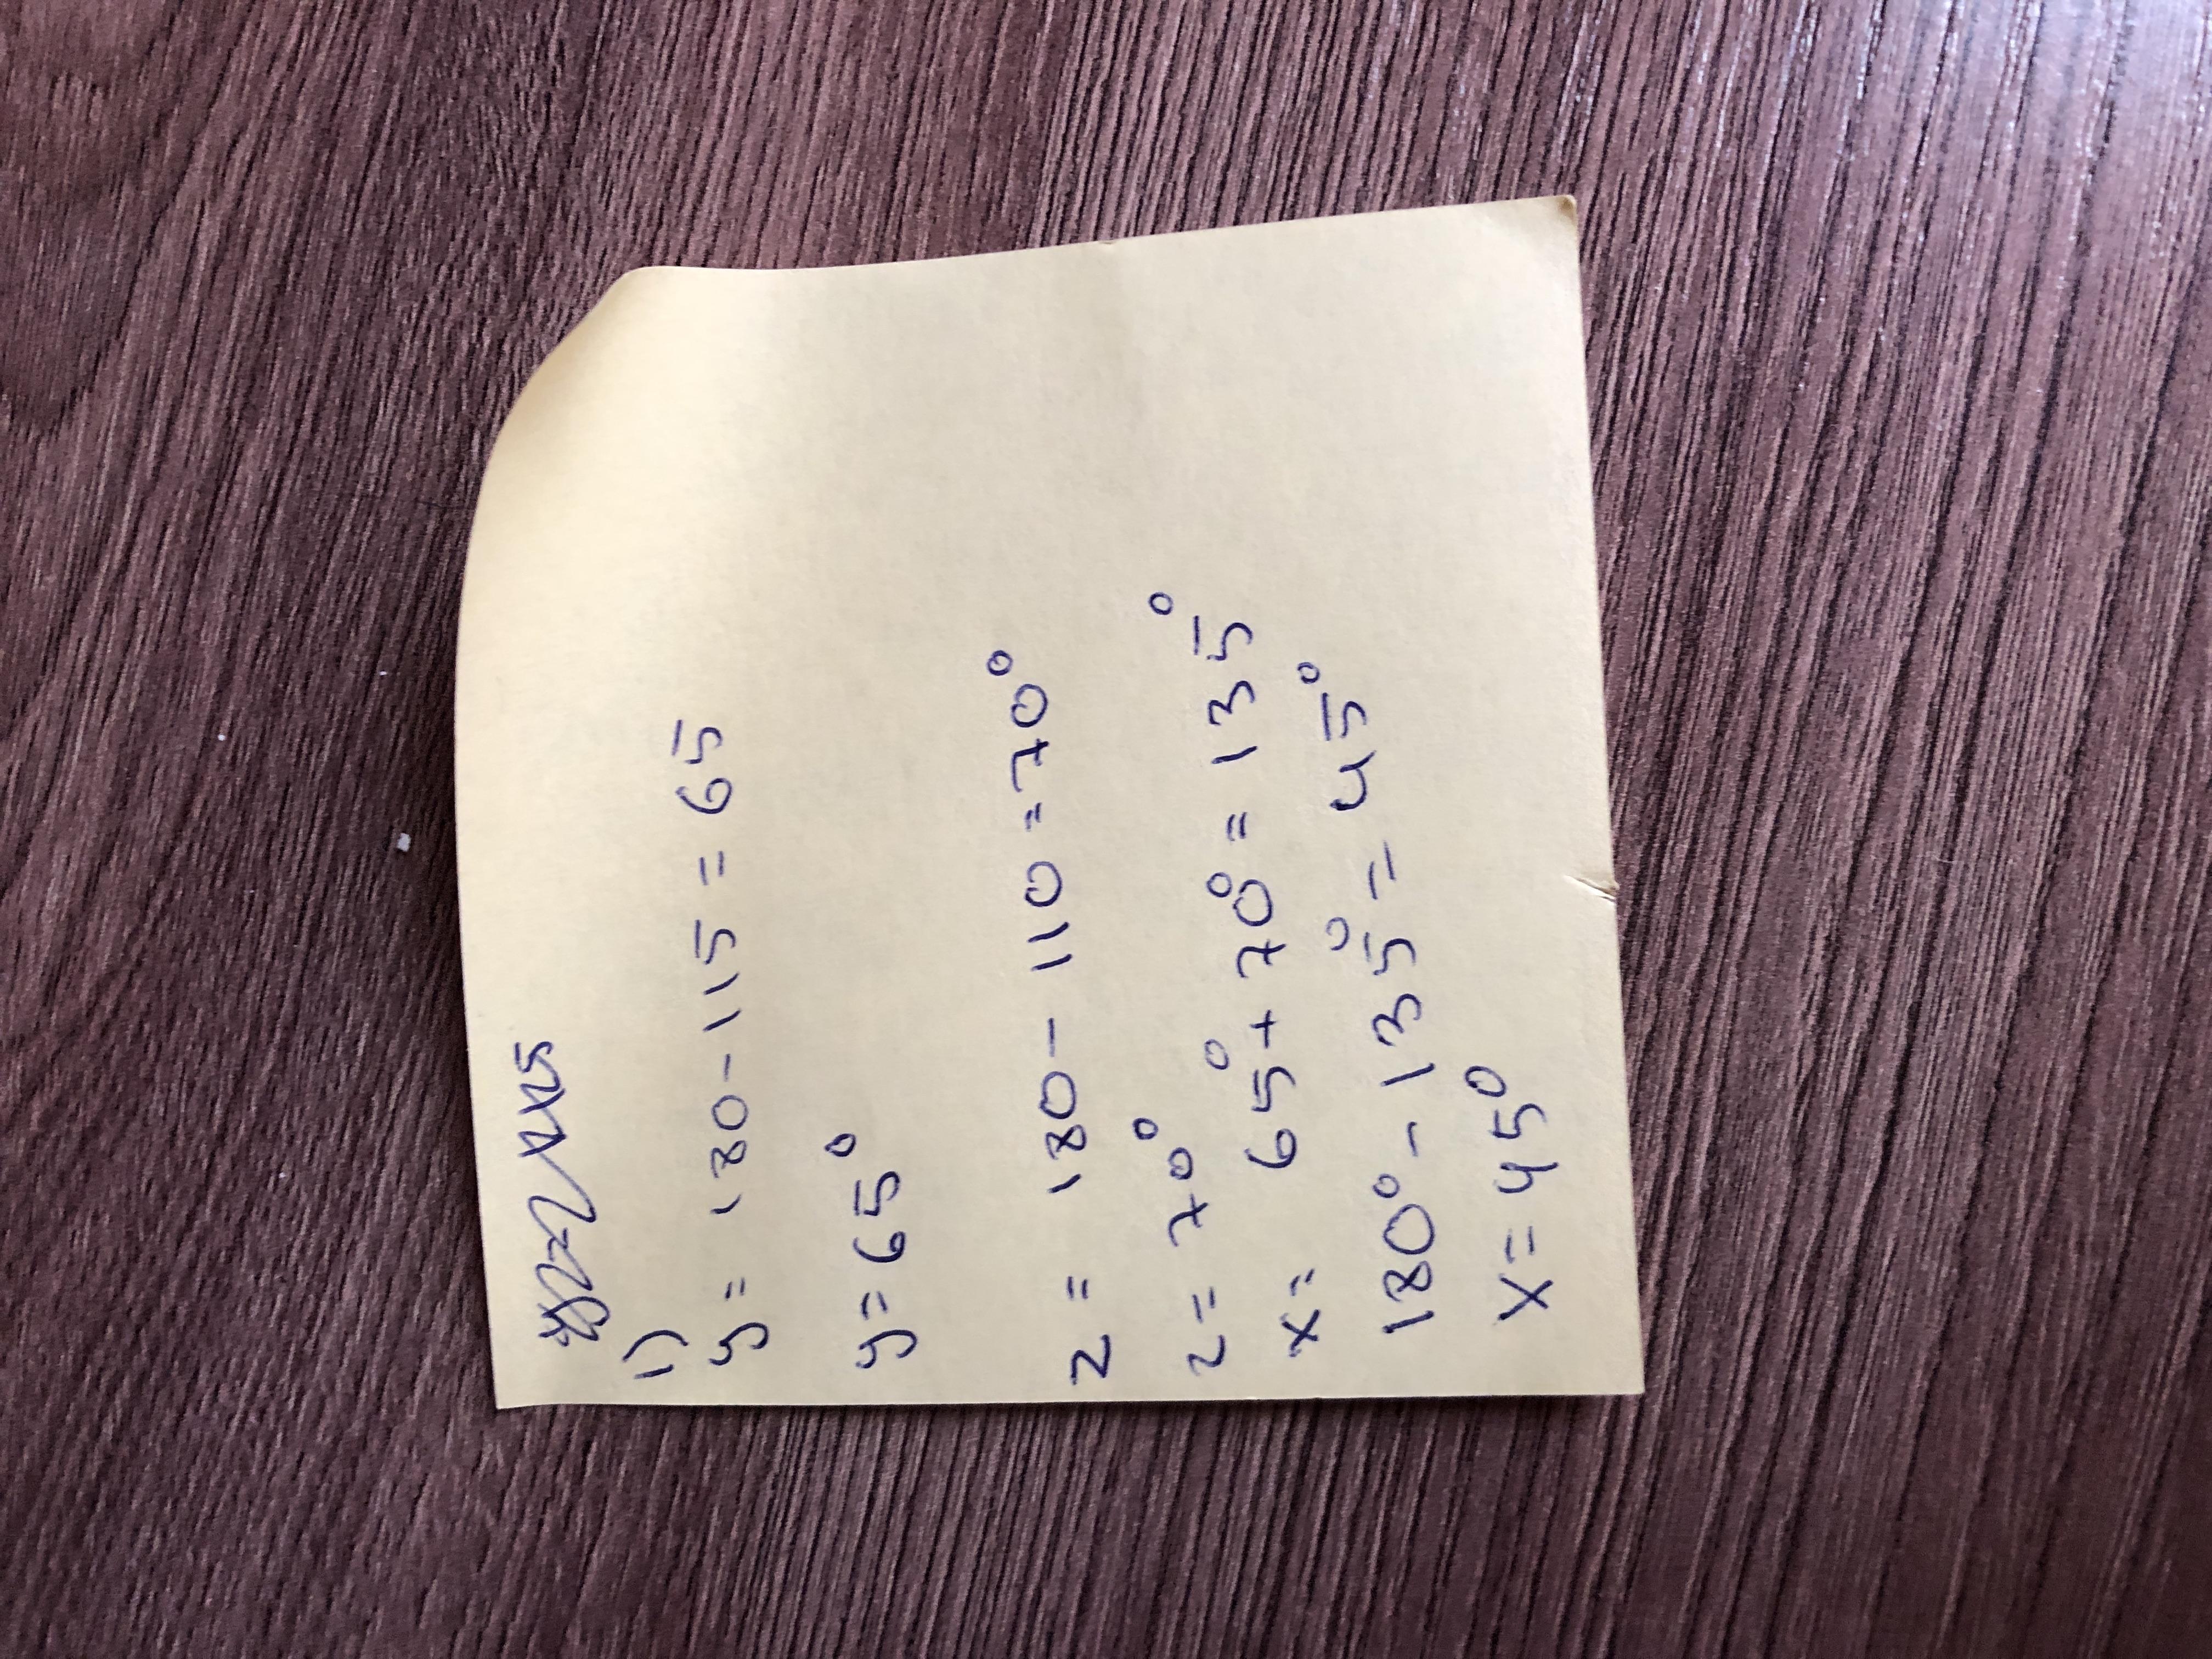 1)
y = 180 - 115 = 65
y = 65°
z = 180 - 110 = 70°
z = 70°
x = 65° + 70° = 135°
180° - 135° = 45°
x = 45°